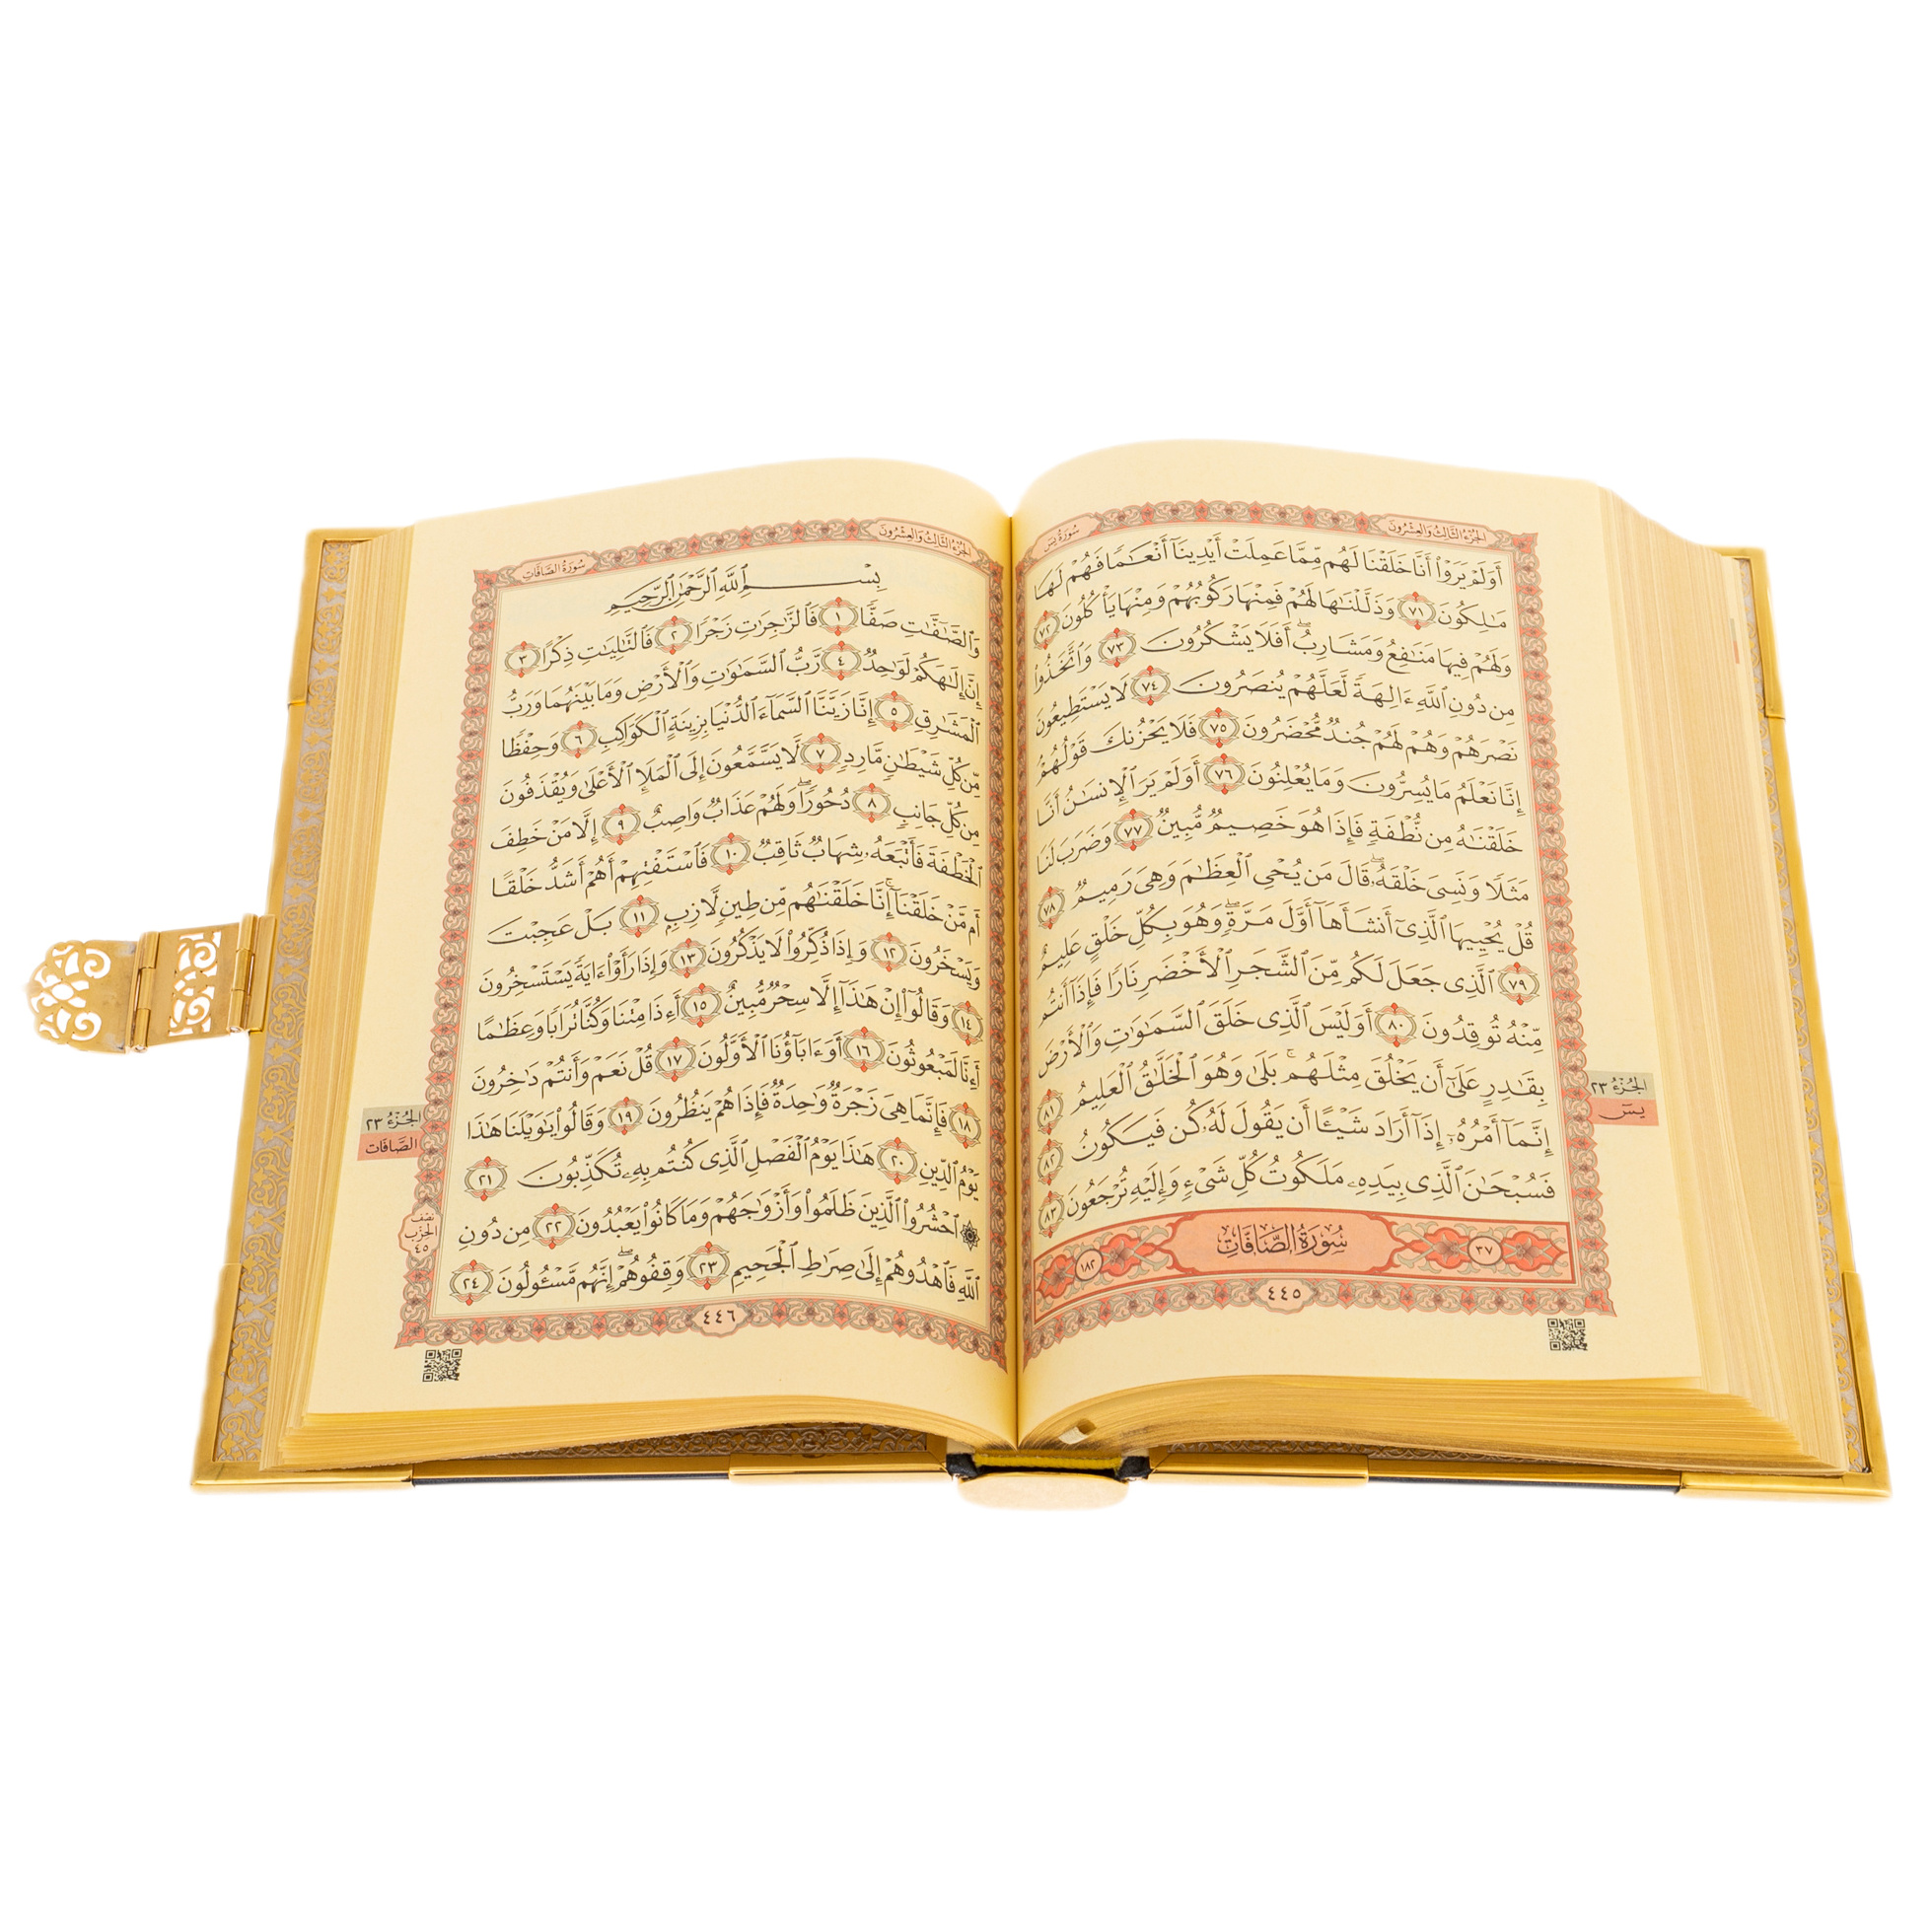 الجُزْءُ الثَّالِثُ وَالعِشْرُونَ
سُورَةُ يس
أَوَلَمْ يَرَوْا۟ أَنَّا خَلَقْنَا لَهُم مِّمَّا عَمِلَتْ أَيْدِينَآ أَنْعَـٰمًا فَهُمْ لَهَا
مَـٰلِكُونَ ٧١ وَذَلَّلْنَـٰهَا لَهُمْ فَمِنْهَا رَكُوبُهُمْ وَمِنْهَا يَأْكُلُونَ ٧٢
وَلَهُمْ فِيهَا مَنَـٰفِعُ وَمَشَارِبُ ۖ أَفَلَا يَشْكُرُونَ ٧٣ وَٱتَّخَذُوا۟
مِن دُونِ ٱللَّهِ ءَالِهَةً لَّعَلَّهُمْ يُنصَرُونَ ٧٤ لَا يَسْتَطِيعُونَ
نَصْرَهُمْ وَهُمْ لَهُمْ جُندٌ مُّحْضَرُونَ ٧٥ فَلَا يَحْزُنكَ قَوْلُهُمْ ۘ
إِنَّا نَعْلَمُ مَا يُسِرُّونَ وَمَا يُعْلِنُونَ ٧٦ أَوَلَمْ يَرَ ٱلْإِنسَـٰنُ أَنَّا
خَلَقْنَـٰهُ مِن نُّطْفَةٍ فَإِذَا هُوَ خَصِيمٌ مُّبِينٌ ٧٧ وَضَرَبَ لَنَا
مَثَلًا وَنَسِىَ خَلْقَهُۥ ۖ قَالَ مَن يُحْىِ ٱلْعِظَـٰمَ وَهِىَ رَمِيمٌ ٧٨
قُلْ يُحْيِيهَا ٱلَّذِىٓ أَنشَأَهَآ أَوَّلَ مَرَّةٍ ۖ وَهُوَ بِكُلِّ خَلْقٍ عَلِيمٌ
٧٩ ٱلَّذِى جَعَلَ لَكُم مِّنَ ٱلشَّجَرِ ٱلْأَخْضَرِ نَارًا فَإِذَآ أَنتُم
مِّنْهُ تُوقِدُونَ ٨٠ أَوَلَيْسَ ٱلَّذِى خَلَقَ ٱلسَّمَـٰوَٰتِ وَٱلْأَرْضَ
بِقَـٰدِرٍ عَلَىٰٓ أَن يَخْلُقَ مِثْلَهُم ۚ بَلَىٰ وَهُوَ ٱلْخَلَّـٰقُ ٱلْعَلِيمُ ٨١
إِنَّمَآ أَمْرُهُۥٓ إِذَآ أَرَادَ شَيْـًٔا أَن يَقُولَ لَهُۥ كُن فَيَكُونُ ٨٢
فَسُبْحَـٰنَ ٱلَّذِى بِيَدِهِۦ مَلَكُوتُ كُلِّ شَىْءٍ وَإِلَيْهِ تُرْجَعُونَ ٨٣
٣٧ سُورَةُ الصَّافَّاتِ ١٨٢
٤٤٥
الجُزْءُ ٢٣
يس
الجُزْءُ الثَّالِثُ وَالعِشْرُونَ
سُورَةُ الصَّافَاتِ
بِسْمِ ٱللَّهِ ٱلرَّحْمَـٰنِ ٱلرَّحِيمِ
وَٱلصَّـٰٓفَّـٰتِ صَفًّا ١ فَٱلزَّٰجِرَٰتِ زَجْرًا ٢ فَٱلتَّـٰلِيَـٰتِ ذِكْرًا ٣
إِنَّ إِلَـٰهَكُمْ لَوَٰحِدٌ ٤ رَّبُّ ٱلسَّمَـٰوَٰتِ وَٱلْأَرْضِ وَمَا بَيْنَهُمَا وَرَبُّ
ٱلْمَشَـٰرِقِ ٥ إِنَّا زَيَّنَّا ٱلسَّمَآءَ ٱلدُّنْيَا بِزِينَةٍ ٱلْكَوَاكِبِ ٦ وَحِفْظًا
مِّن كُلِّ شَيْطَـٰنٍ مَّارِدٍ ٧ لَّا يَسَّمَّعُونَ إِلَى ٱلْمَلَإِ ٱلْأَعْلَىٰ وَيُقْذَفُونَ
مِن كُلِّ جَانِبٍ ٨ دُحُورًا ۖ وَلَهُمْ عَذَابٌ وَاصِبٌ ٩ إِلَّا مَنْ خَطِفَ
ٱلْخَطْفَةَ فَأَتْبَعَهُۥ شِهَابٌ ثَاقِبٌ ١٠ فَٱسْتَفْتِهِمْ أَهُمْ أَشَدُّ خَلْقًا
أَم مَّنْ خَلَقْنَآ ۚ إِنَّا خَلَقْنَـٰهُم مِّن طِينٍ لَّازِبٍ ١١ بَلْ عَجِبْتَ
وَيَسْخَرُونَ ١٢ وَإِذَا ذُكِّرُوا۟ لَا يَذْكُرُونَ ١٣ وَإِذَا رَأَوْا۟ ءَايَةً يَسْتَسْخِرُونَ
١٤ وَقَالُوٓا۟ إِنْ هَـٰذَآ إِلَّا سِحْرٌ مُّبِينٌ ١٥ أَءِذَا مِتْنَا وَكُنَّا تُرَابًا وَعِظَـٰمًا
أَءِنَّا لَمَبْعُوثُونَ ١٦ أَوَءَابَآؤُنَا ٱلْأَوَّلُونَ ١٧ قُلْ نَعَمْ وَأَنتُمْ دَٰخِرُونَ
١٨ فَإِنَّمَا هِىَ زَجْرَةٌ وَٰحِدَةٌ فَإِذَا هُمْ يَنظُرُونَ ١٩ وَقَالُوا۟ يَـٰوَيْلَنَا هَـٰذَا
يَوْمُ ٱلدِّينِ ٢٠ هَـٰذَا يَوْمُ ٱلْفَصْلِ ٱلَّذِى كُنتُم بِهِۦ تُكَذِّبُونَ ٢١
۞ ٱحْشُرُوا۟ ٱلَّذِينَ ظَلَمُوا۟ وَأَزْوَٰجَهُمْ وَمَا كَانُوا۟ يَعْبُدُونَ ٢٢ مِن دُونِ
ٱللَّهِ فَٱهْدُوهُمْ إِلَىٰ صِرَٰطِ ٱلْجَحِيمِ ٢٣ وَقِفُوهُمْ ۖ إِنَّهُم مَّسْـُٔولُونَ ٢٤
٤٤٦
الجُزْءُ ٢٣
الصَّافَات
نصف
الحزب
٤٥